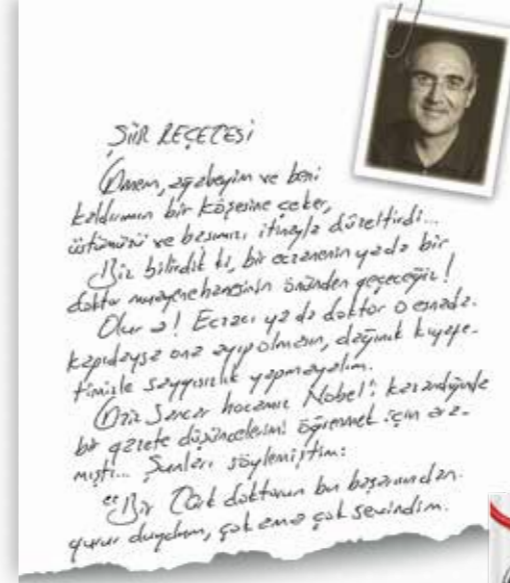 ŞİİR REÇETESİ
Annem, ağabeyim ve beni
kaldırımın bir köşesine çeker,
üstümüzü ve başımızı itinayla düzeltirdi...
Biz bilirdik ki, bir eczanenin ya da bir
doktor muayenehanesinin önünden geçeceğiz!
Olur a! Eczacı ya da doktor o esnada
kapıdaysa ona ayıp olmasın, dağınık kıyafe-
timizle saygısızlık yapmayalım.
Aziz Sancar hocamız Nobel'i kazandığında
bir gazete düşüncelerimi öğrenmek için ara-
mıştı... Şunları söylemiştim:
"Bir Türk doktorun bu başarısından
gurur duydum, çok ama çok sevindim.